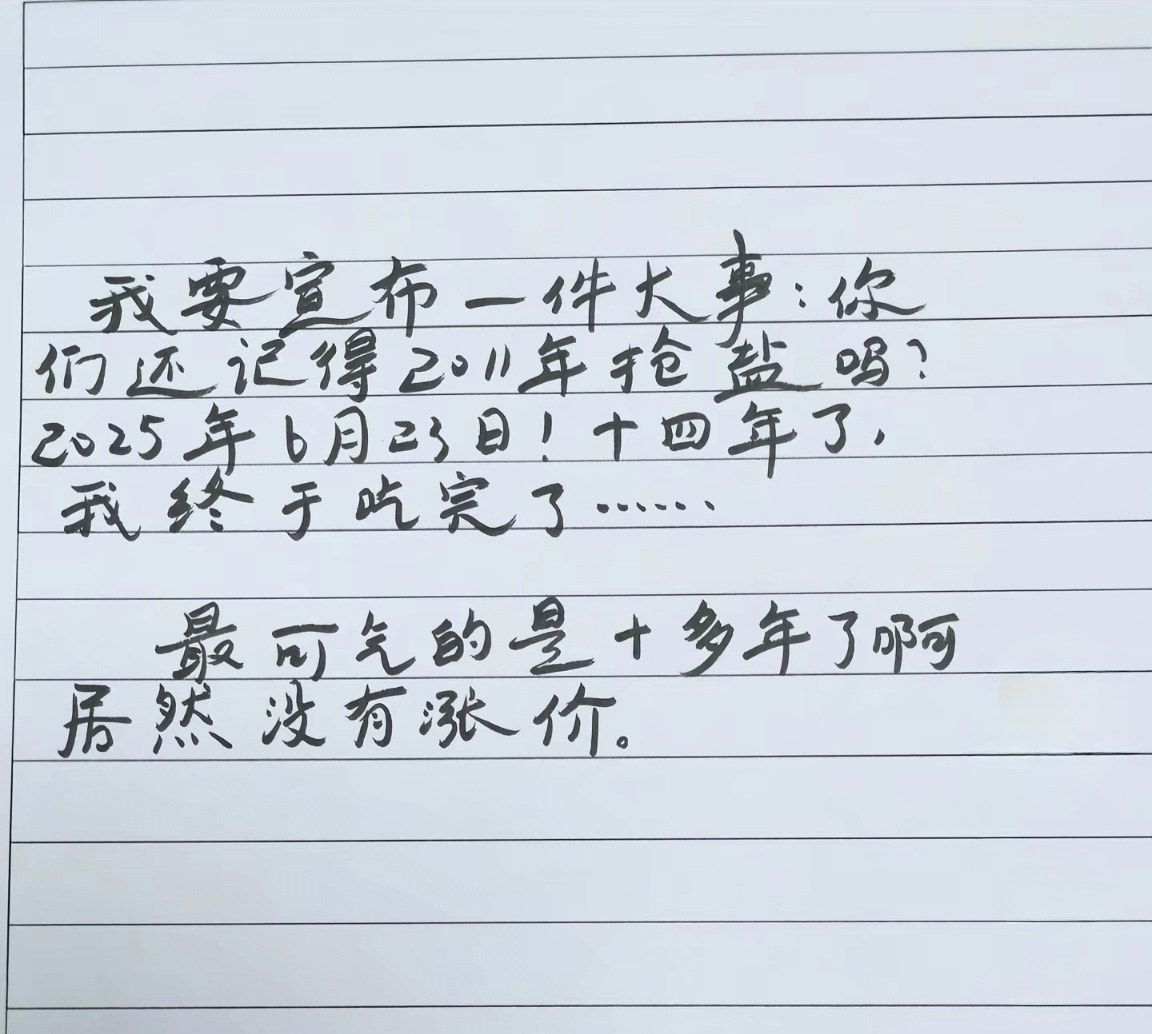 我要宣布一件大事:你
们还记得2011年抢盐吗?
2025年6月23日!十四年了,
我终于吃完了……
最可气的是十多年了啊
居然没有涨价。